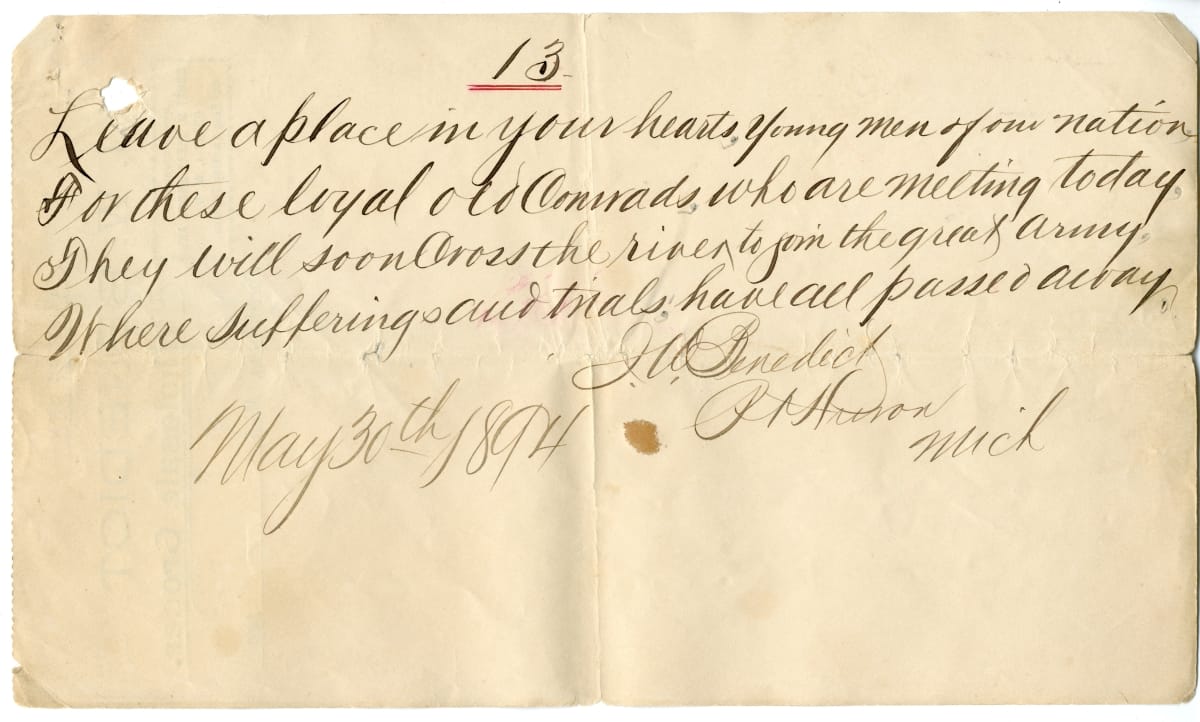 13
Leave a place in your hearts, Young men of our nation
For these loyal old Comrads, who are meeting today,
They will soon Cross the river, to join the great army.
Where sufferings and trials, have all passed away.
J. W. Benedict
Pt Huron
Mich
May 30th 1894